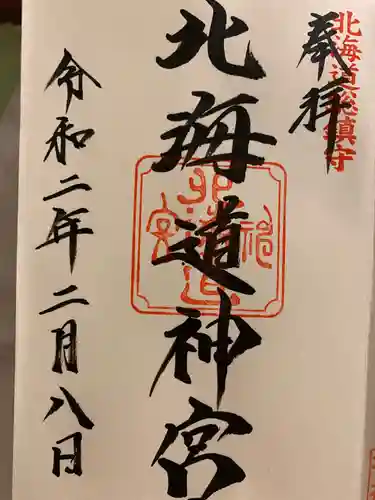 北海道総鎮守
奉拝
北海道神宮
令和二年二月八日